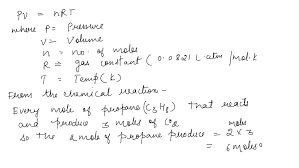 PV = nRT
where P = Pressure
V = Volume
n = no. of moles
R = gas constant (0.0821 L.atm/mol.k
T = Temp(K)
From the chemical reaction -
Every mole of propane (C3H8) that reacts
and produce 3 moles of CO2
so the 2 mole of propane produce = 2 x 3 moles
= 6 moles